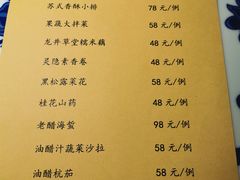 苏式香酥小排 78 元/例
果蔬大拌菜 58 元/例
龙井草堂糯米藕 48 元/例
灵隐素香卷 48 元/例
黑松露菜花 58 元/例
桂花山药 48 元/例
老醋海蜇 98 元/例
油醋汁蔬菜沙拉 58 元/例
油醋杭茄 58 元/例